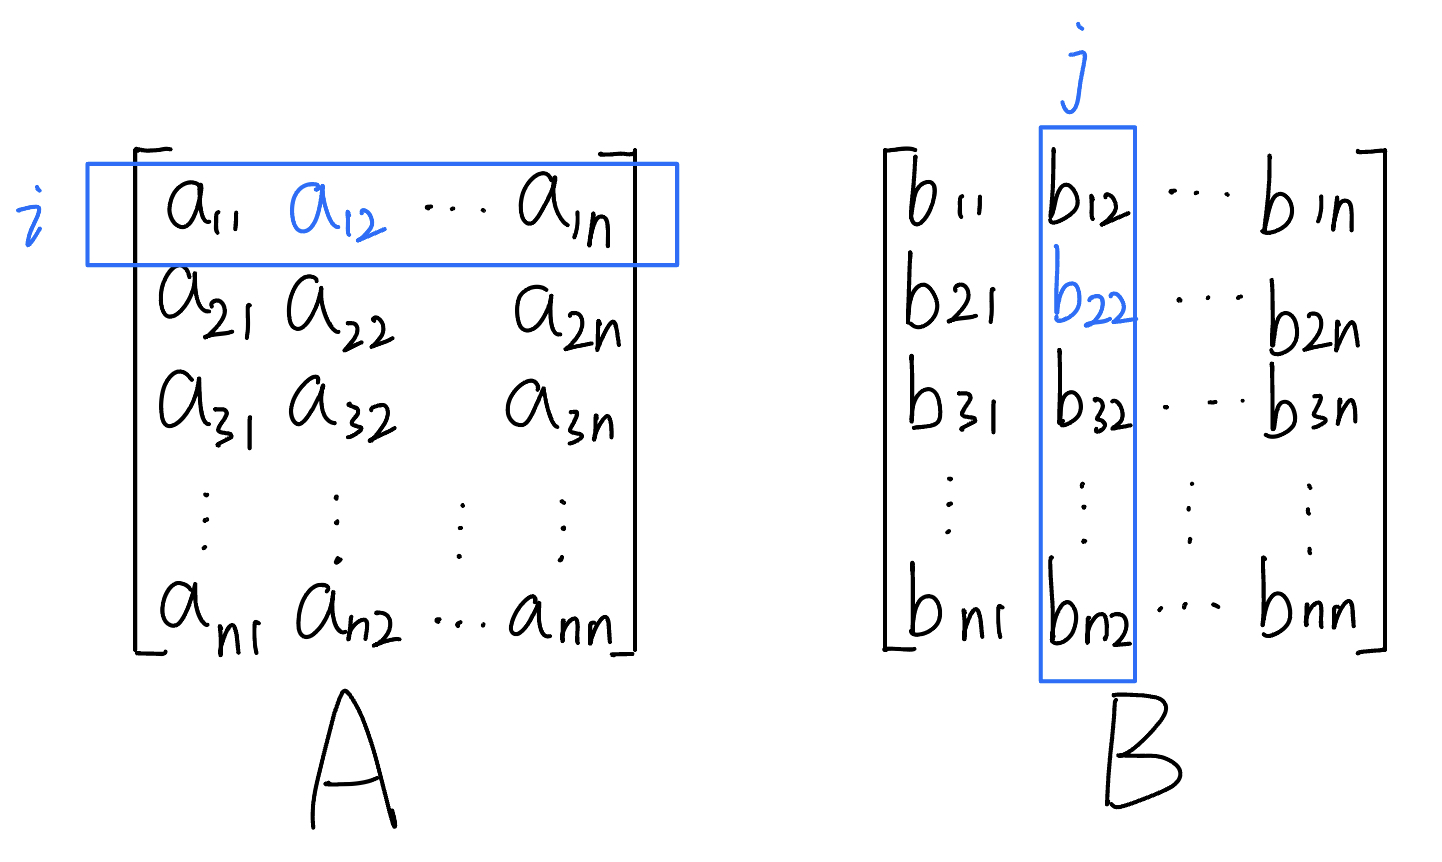 j
i
a11 a12 ... a1n
a21 a22 a2n
a31 a32 a3n
⋮ ⋮ ⋮ ⋮
an1 an2 ... ann
A
b11 b12 ... b1n
b21 b22 ... b2n
b31 b32 ... b3n
⋮ ⋮ ⋮ ⋮
bn1 bn2 ... bnn
B